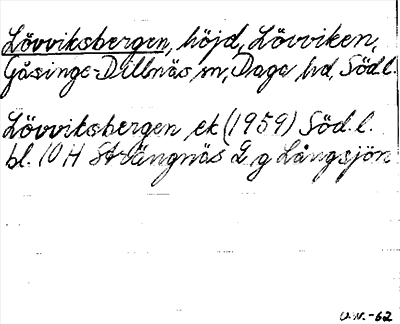 Lövviksbergen, höjd, Lövviken,
Gåsinge-Dillnäs sn, Daga hd, Södl.
Lövviksbergen ek (1959) Söd.l.
bl. 10 H Strängnäs g Långsjön
U.W.-62